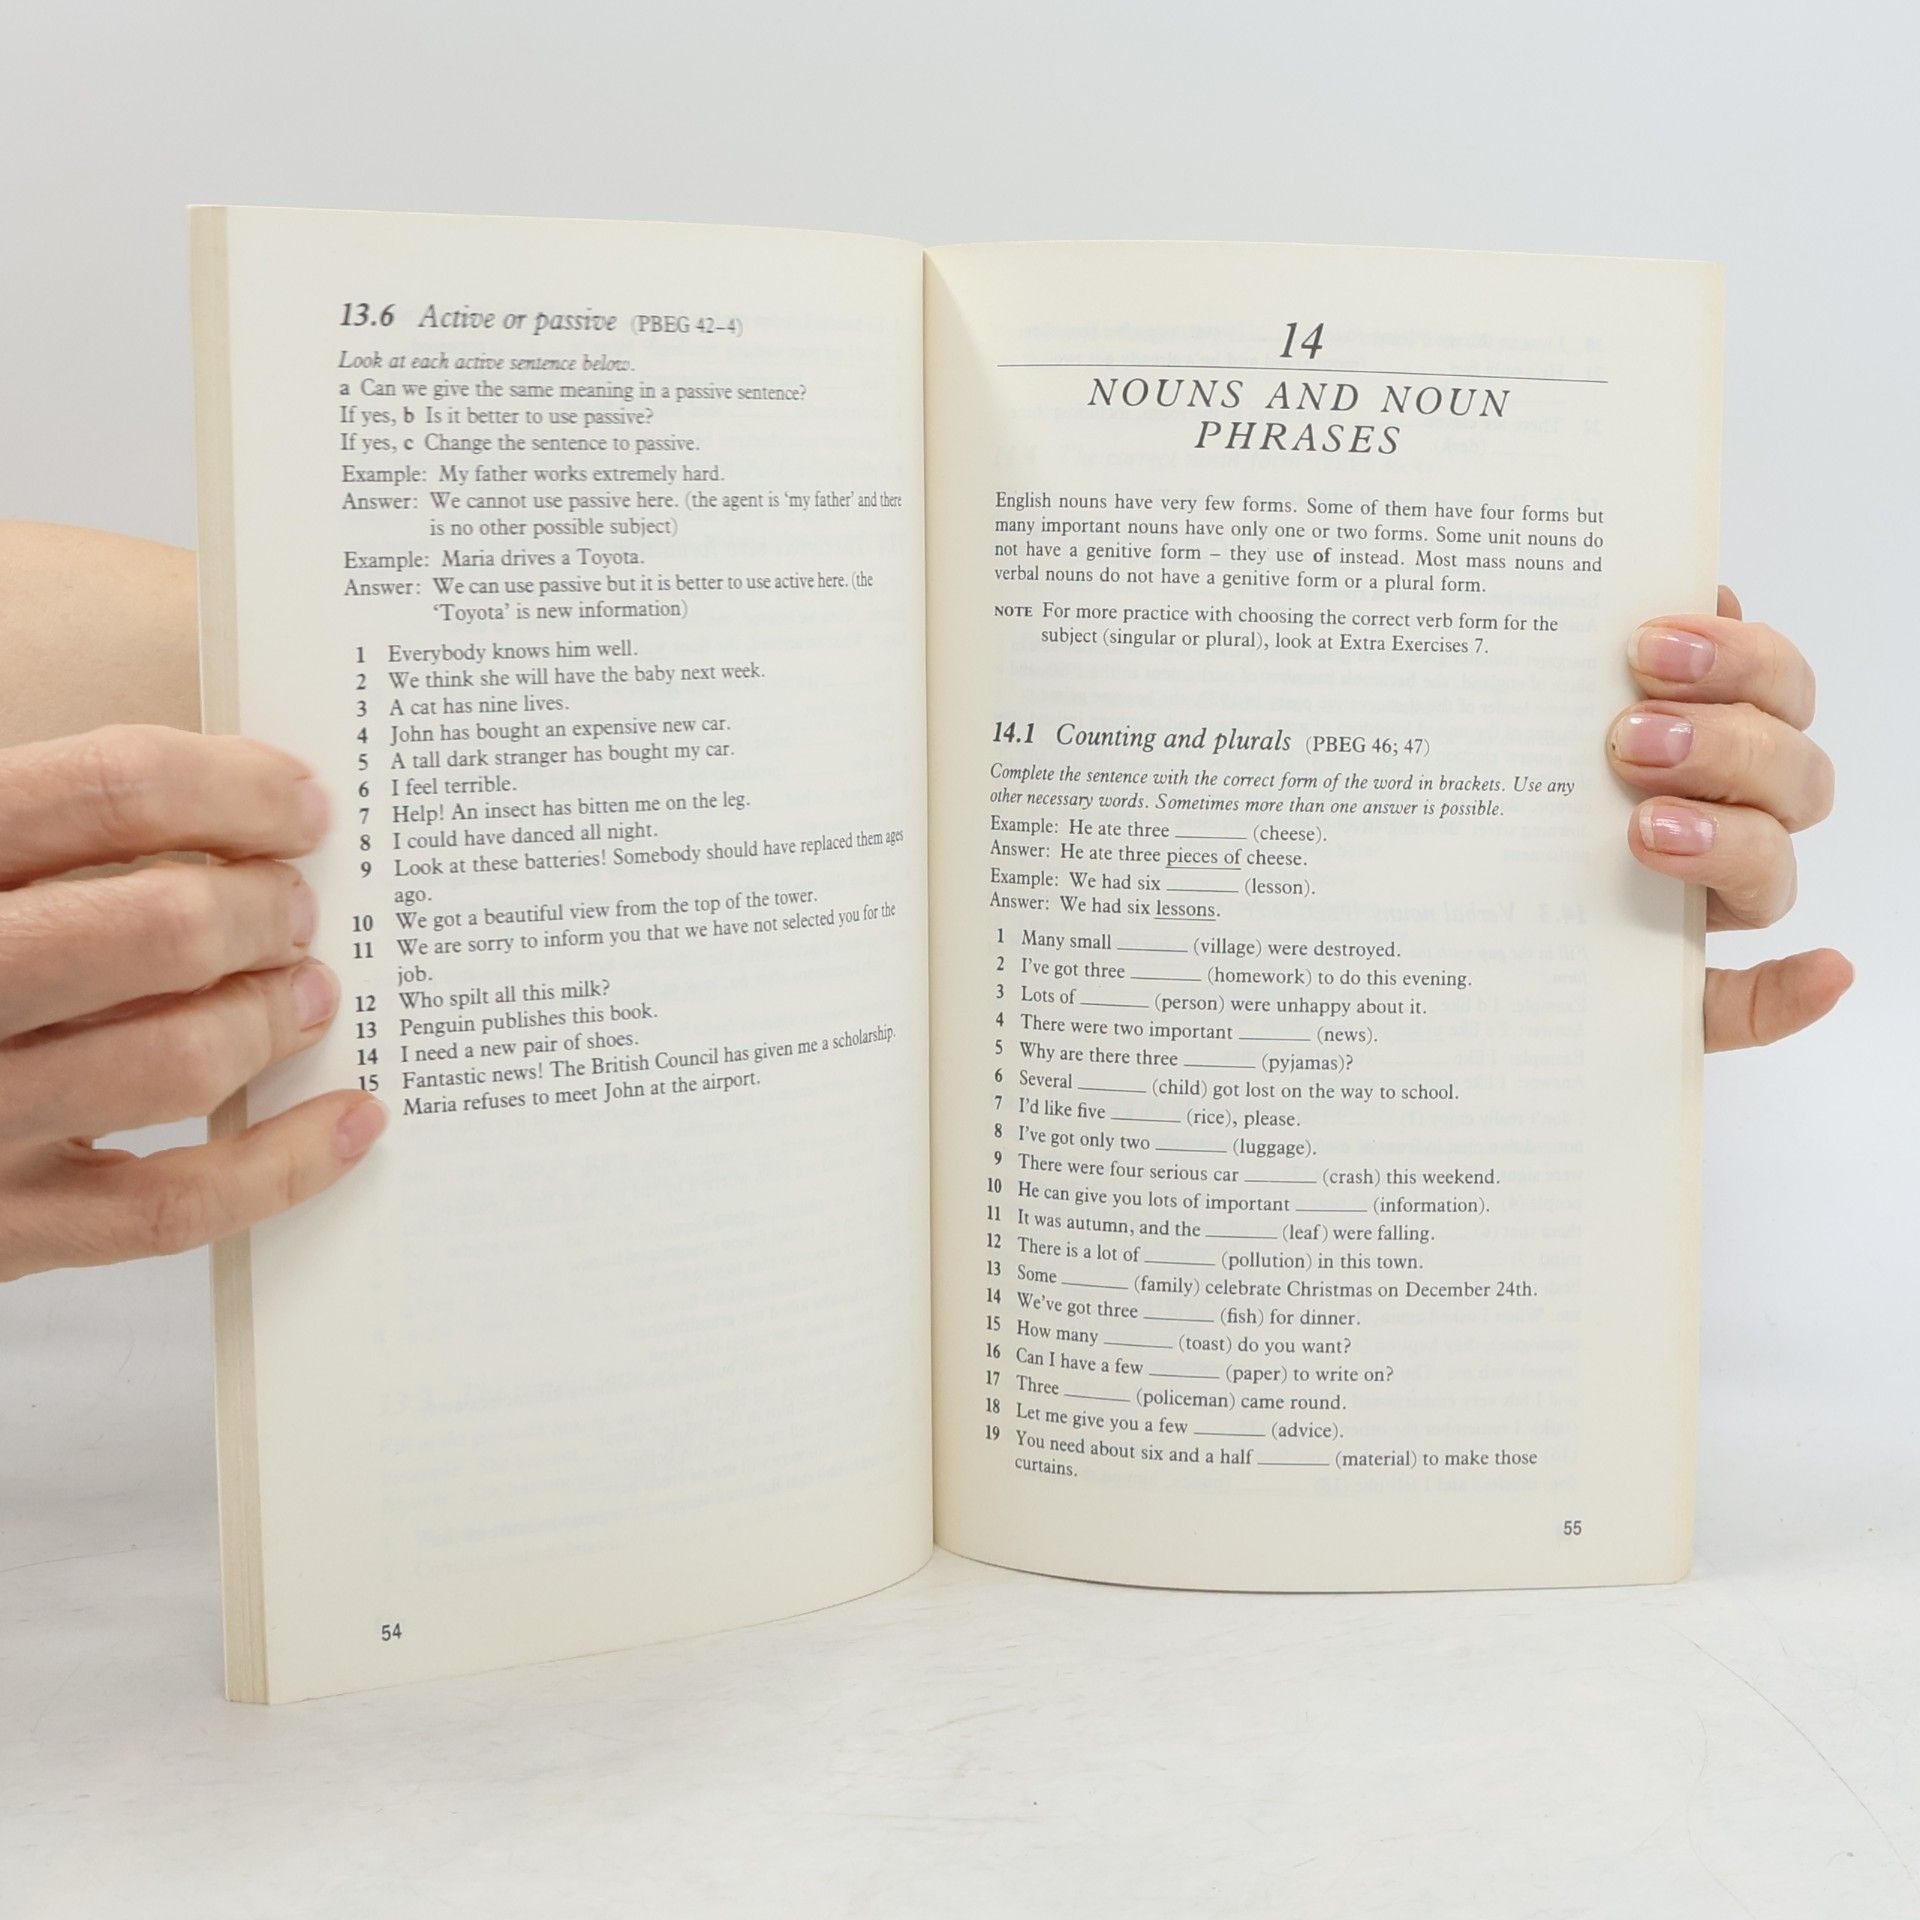 13.6 Active or passive (PBEG 42–4)
Look at each active sentence below.
a Can we give the same meaning in a passive sentence?
If yes, b Is it better to use passive?
If yes, c Change the sentence to passive.
Example: My father works extremely hard.
Answer: We cannot use passive here. (the agent is ‘my father’ and there
is no other possible subject)
Example: Maria drives a Toyota.
Answer: We can use passive but it is better to use active here. (the
‘Toyota’ is new information)
1 Everybody knows him well.
2 We think she will have the baby next week.
3 A cat has nine lives.
4 John has bought an expensive new car.
5 A tall dark stranger has bought my car.
6 I feel terrible.
7 Help! An insect has bitten me on the leg.
8 I could have danced all night.
9 Look at these batteries! Somebody should have replaced them ages
ago.
10 We got a beautiful view from the top of the tower.
11 We are sorry to inform you that we have not selected you for the
job.
12 Who spilt all this milk?
13 Penguin publishes this book.
14 I need a new pair of shoes.
15 Fantastic news! The British Council has given me a scholarship.
Maria refuses to meet John at the airport.
54
14
NOUNS AND NOUN
PHRASES
English nouns have very few forms. Some of them have four forms but
many important nouns have only one or two forms. Some unit nouns do
not have a genitive form – they use of instead. Most mass nouns and
verbal nouns do not have a genitive form or a plural form.
NOTE For more practice with choosing the correct verb form for the
subject (singular or plural), look at Extra Exercises 7.
14.1 Counting and plurals (PBEG 46; 47)
Complete the sentence with the correct form of the word in brackets. Use any
other necessary words. Sometimes more than one answer is possible.
Example: He ate three ______ (cheese).
Answer: He ate three pieces of cheese.
Example: We had six ______ (lesson).
Answer: We had six lessons.
1 Many small ______ (village) were destroyed.
2 I've got three ______ (homework) to do this evening.
3 Lots of ______ (person) were unhappy about it.
4 There were two important ______ (news).
5 Why are there three ______ (pyjamas)?
6 Several ______ (child) got lost on the way to school.
7 I'd like five ______ (rice), please.
8 I've got only two ______ (luggage).
9 There were four serious car ______ (crash) this weekend.
10 He can give you lots of important ______ (information).
11 It was autumn, and the ______ (leaf) were falling.
12 There is a lot of ______ (pollution) in this town.
13 Some ______ (family) celebrate Christmas on December 24th.
14 We've got three ______ (fish) for dinner.
15 How many ______ (toast) do you want?
16 Can I have a few ______ (paper) to write on?
17 Three ______ (policeman) came round.
18 Let me give you a few ______ (advice).
19 You need about six and a half ______ (material) to make those
curtains.
55